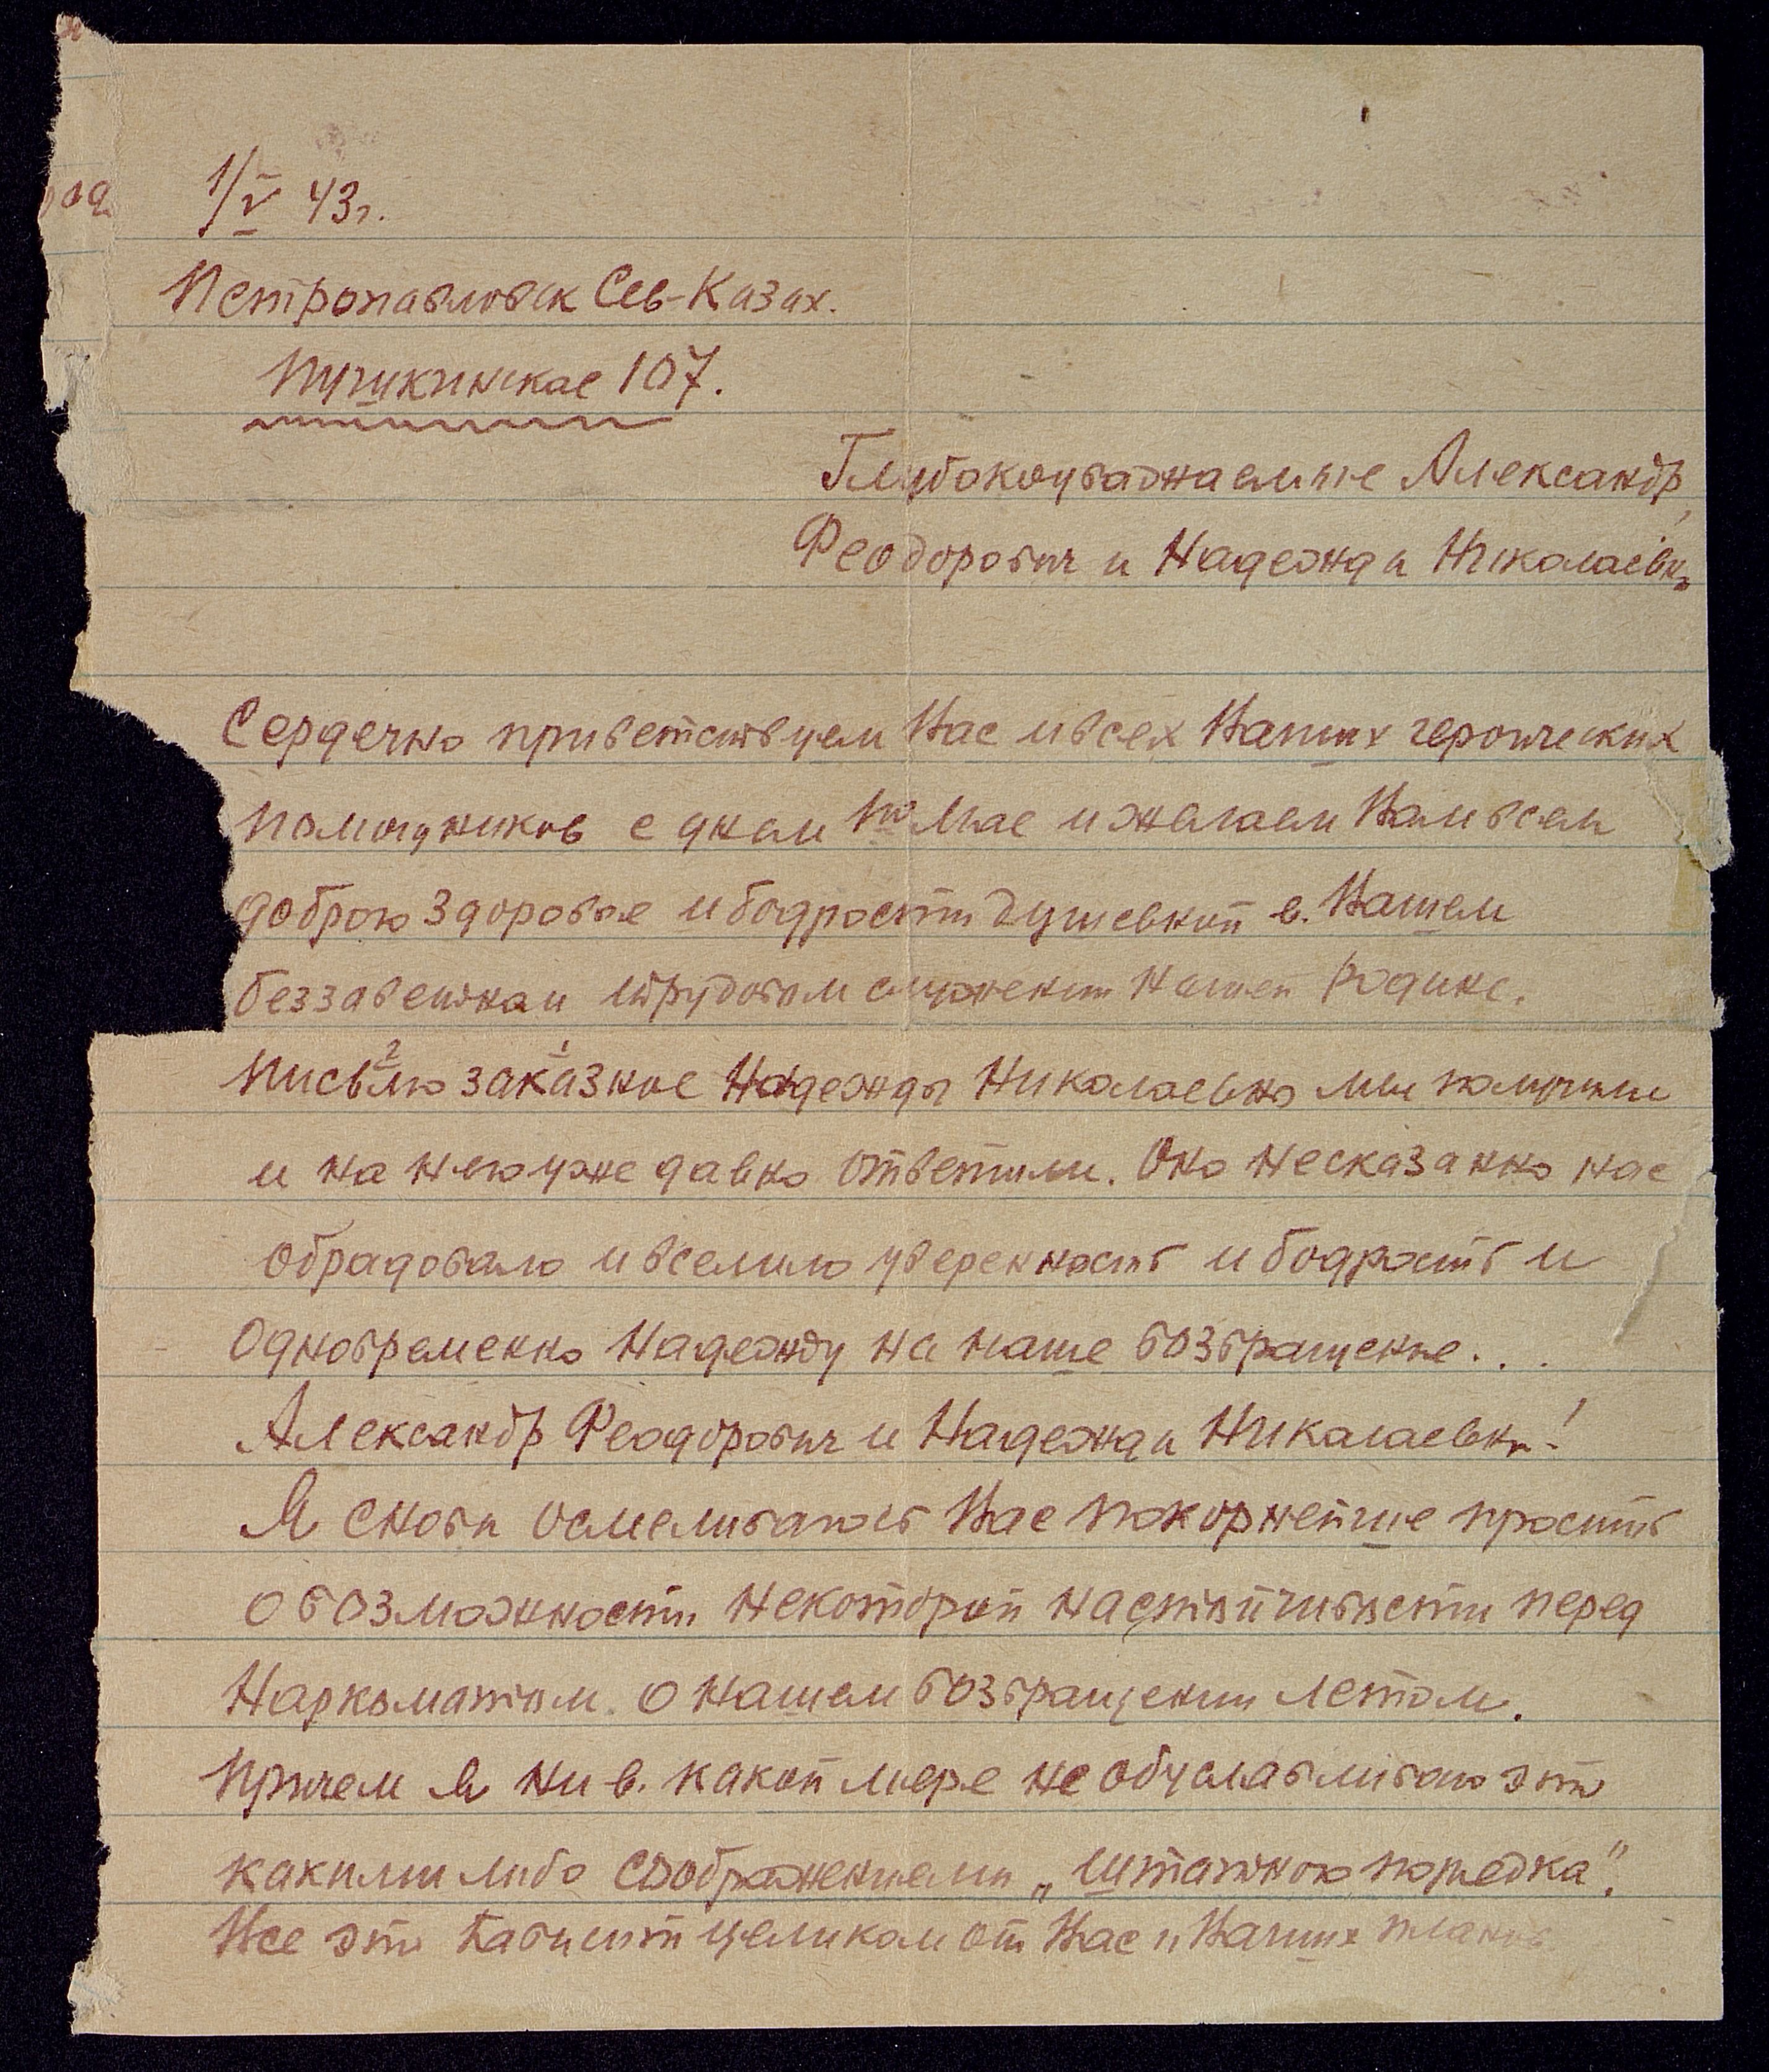 1/V 43г.
Петропавловск Сев-Казах.
Пушкинская 107.
Глубокоуважаемые Александр
Феодорович и Надежда Николаевна
Сердечно приветствуем Вас и всех Ваших героических
помощников с днем 1го Мая и желаем Вам всем
доброго здоровья и бодрости душевной в. Вашем
беззаветном трудовом служении нашей Родине.
Письмо 2 заказное 1 Надежды Николаевны мы получили
и на него уже давно ответили. Оно несказанно нас
обрадовало и вселило уверенность и бодрость и
одновременно надежду на наше возвращение...
Александр Феодорович и Надежда Николаевна!
Я снова осмеливаюсь Вас покорнейше просить
о возможности некоторой настойчивости перед
Наркоматом. о нашем возвращении летом.
Причем я ни в. какой мере не обуславливаю это
какими либо соображениями „штатного порядка".
Все это зависит целиком от Вас и Ваших планов.